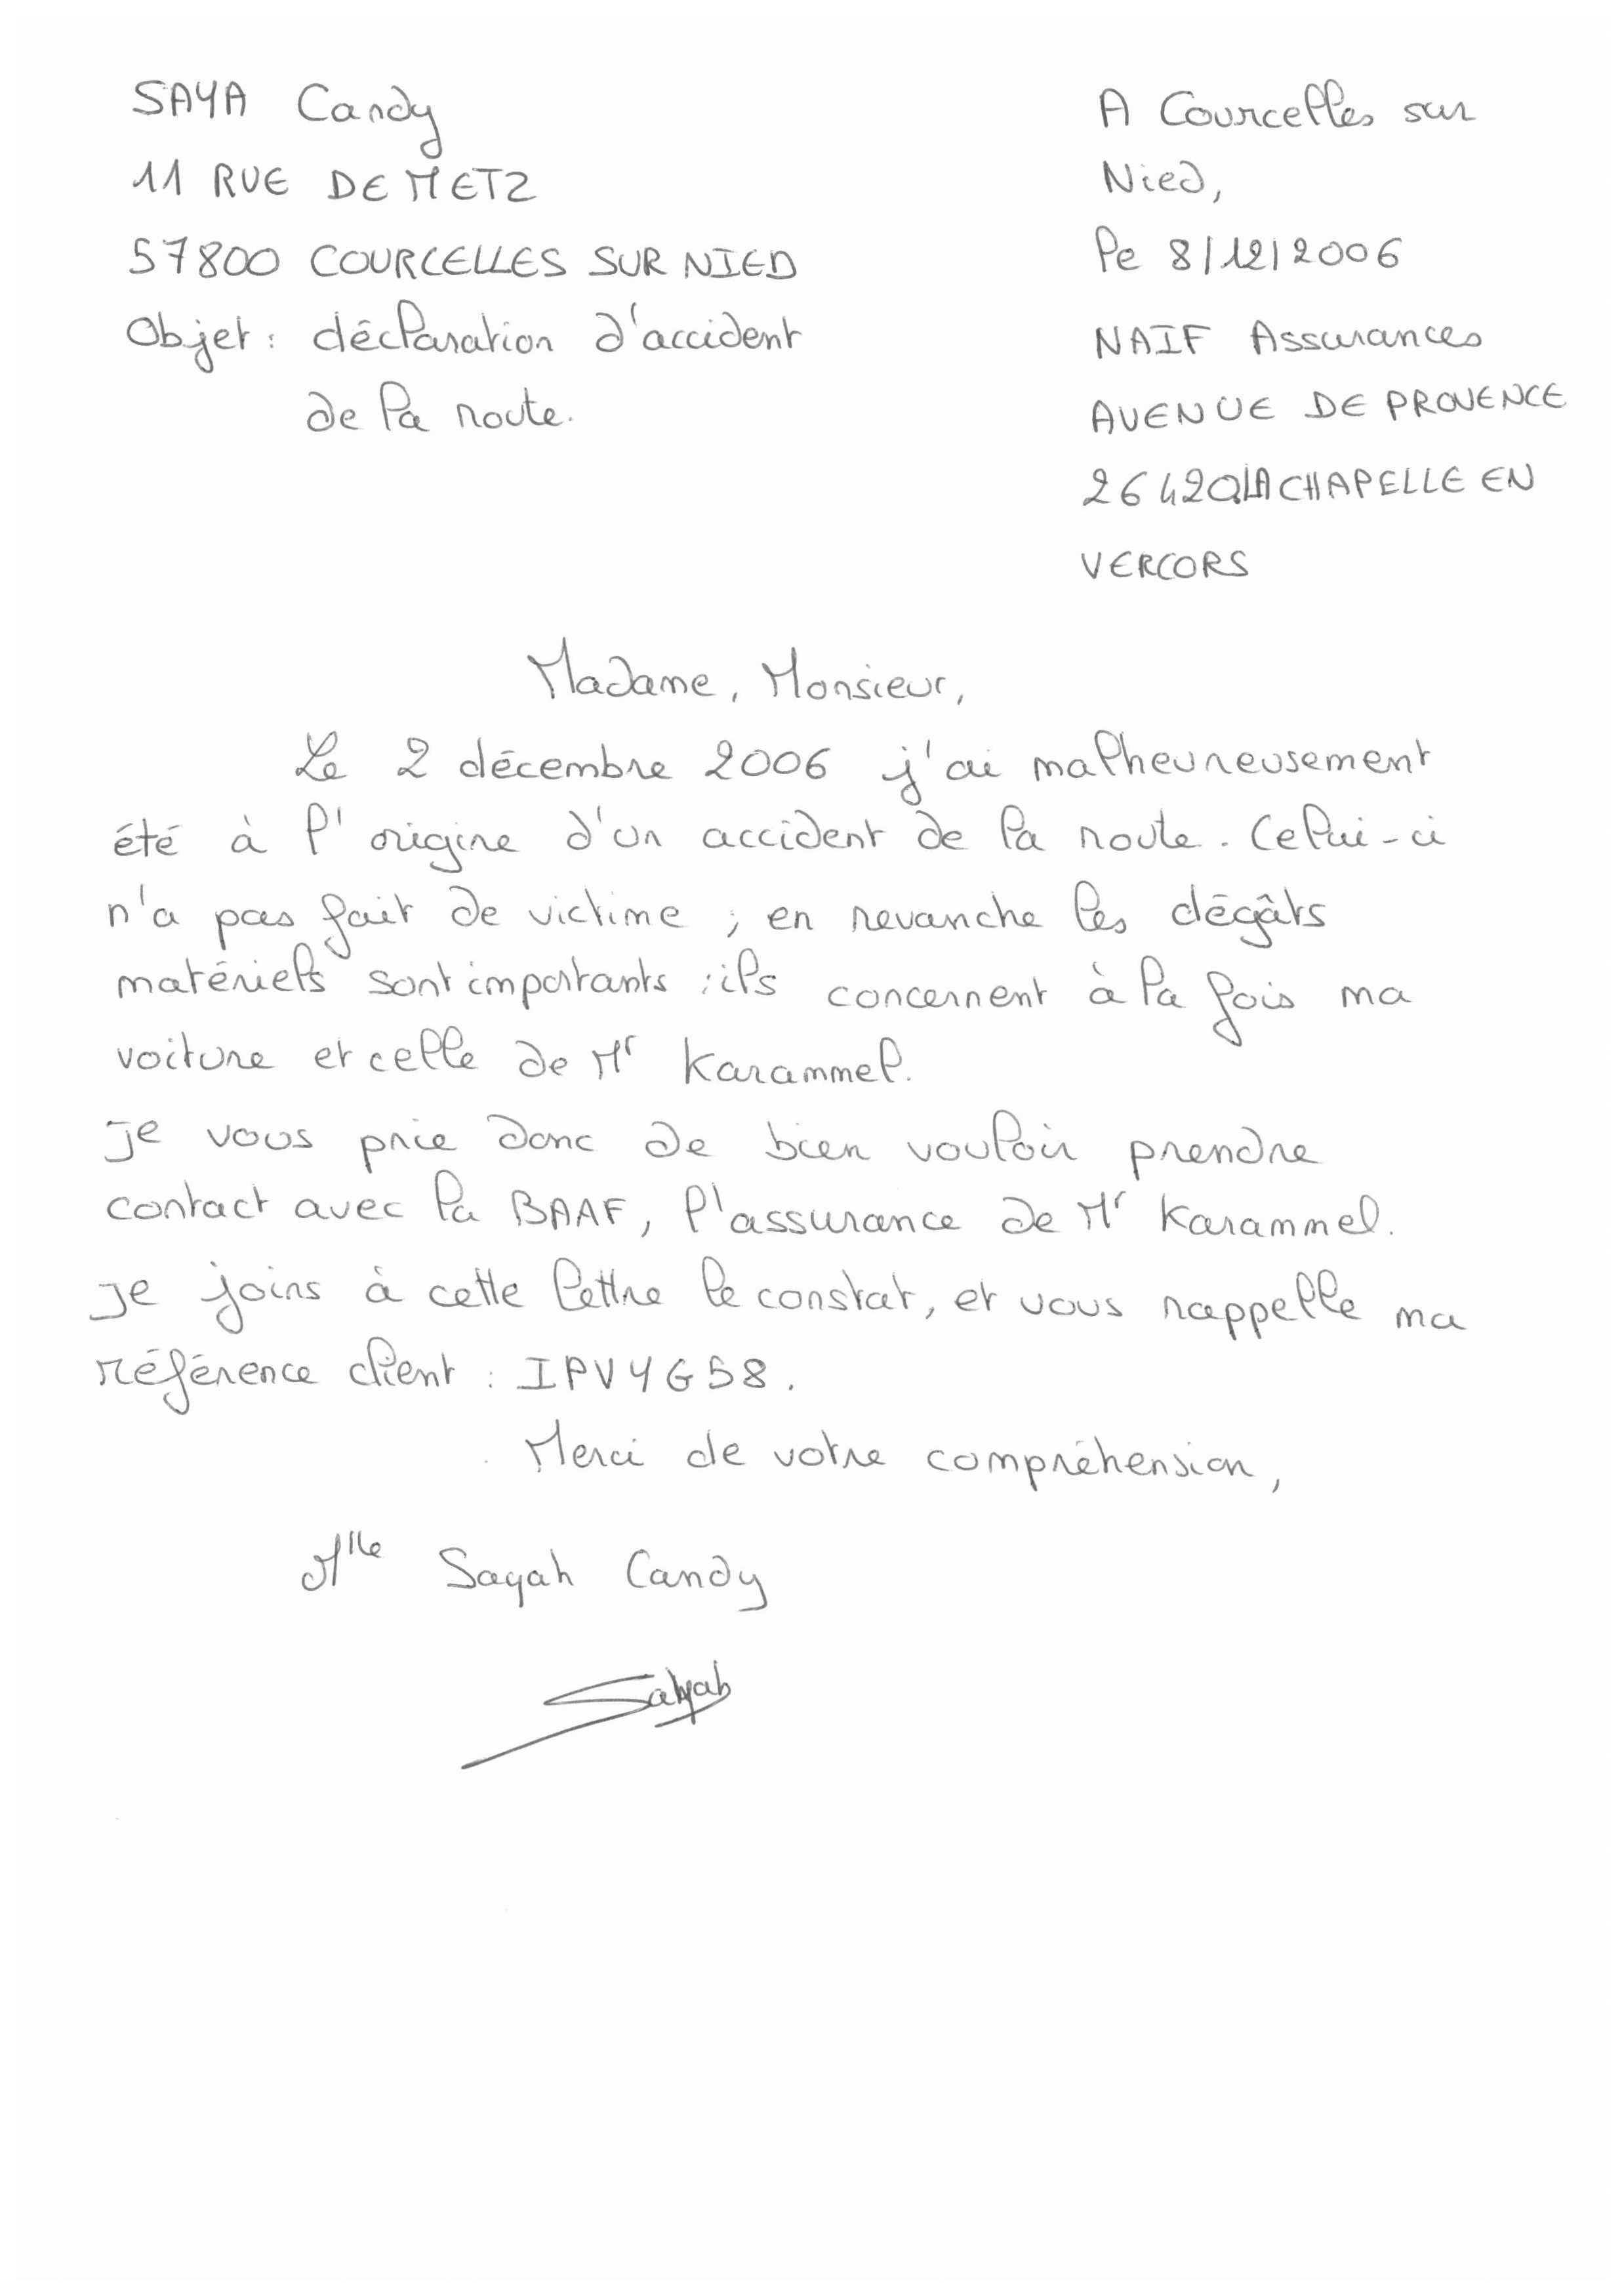 SAYA Candy
11 RUE DE METZ
57800 COURCELLES SUR NIED
Objet : déclaration d'accident
de la route.
A Courcelles sur
Nied,
le 8/12/2006
NAIF Assurances
AVENUE DE PROVENCE
26420 LA CHAPELLE EN
VERCORS
Madame, Monsieur,
Le 2 décembre 2006 j'ai malheureusement
été à l'origine d'un accident de la route. Celui-ci
n'a pas fait de victime ; en revanche les dégâts
matériels sont importants : ils concernent à la fois ma
voiture et celle de Mr Karammel.
Je vous prie donc de bien vouloir prendre
contact avec la BAAF, l'assurance de Mr Karammel.
Je joins à cette lettre le constat, et vous rappelle ma
référence client : IPVYG58.
Merci de votre compréhension,
Mlle Sayah Candy
Sayah